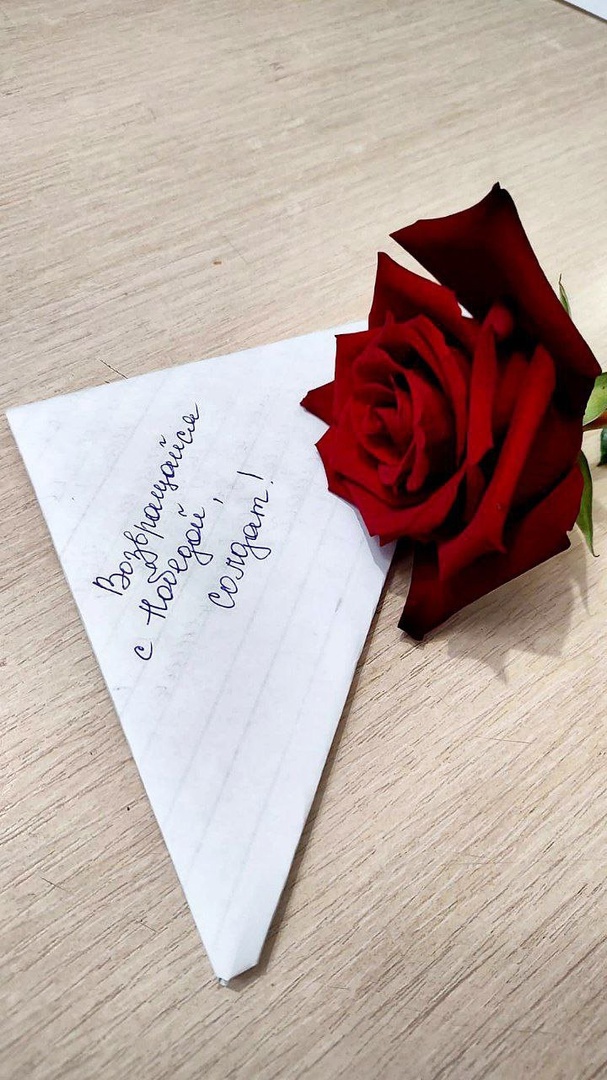 Возвращайся
с Победой,
солдат!